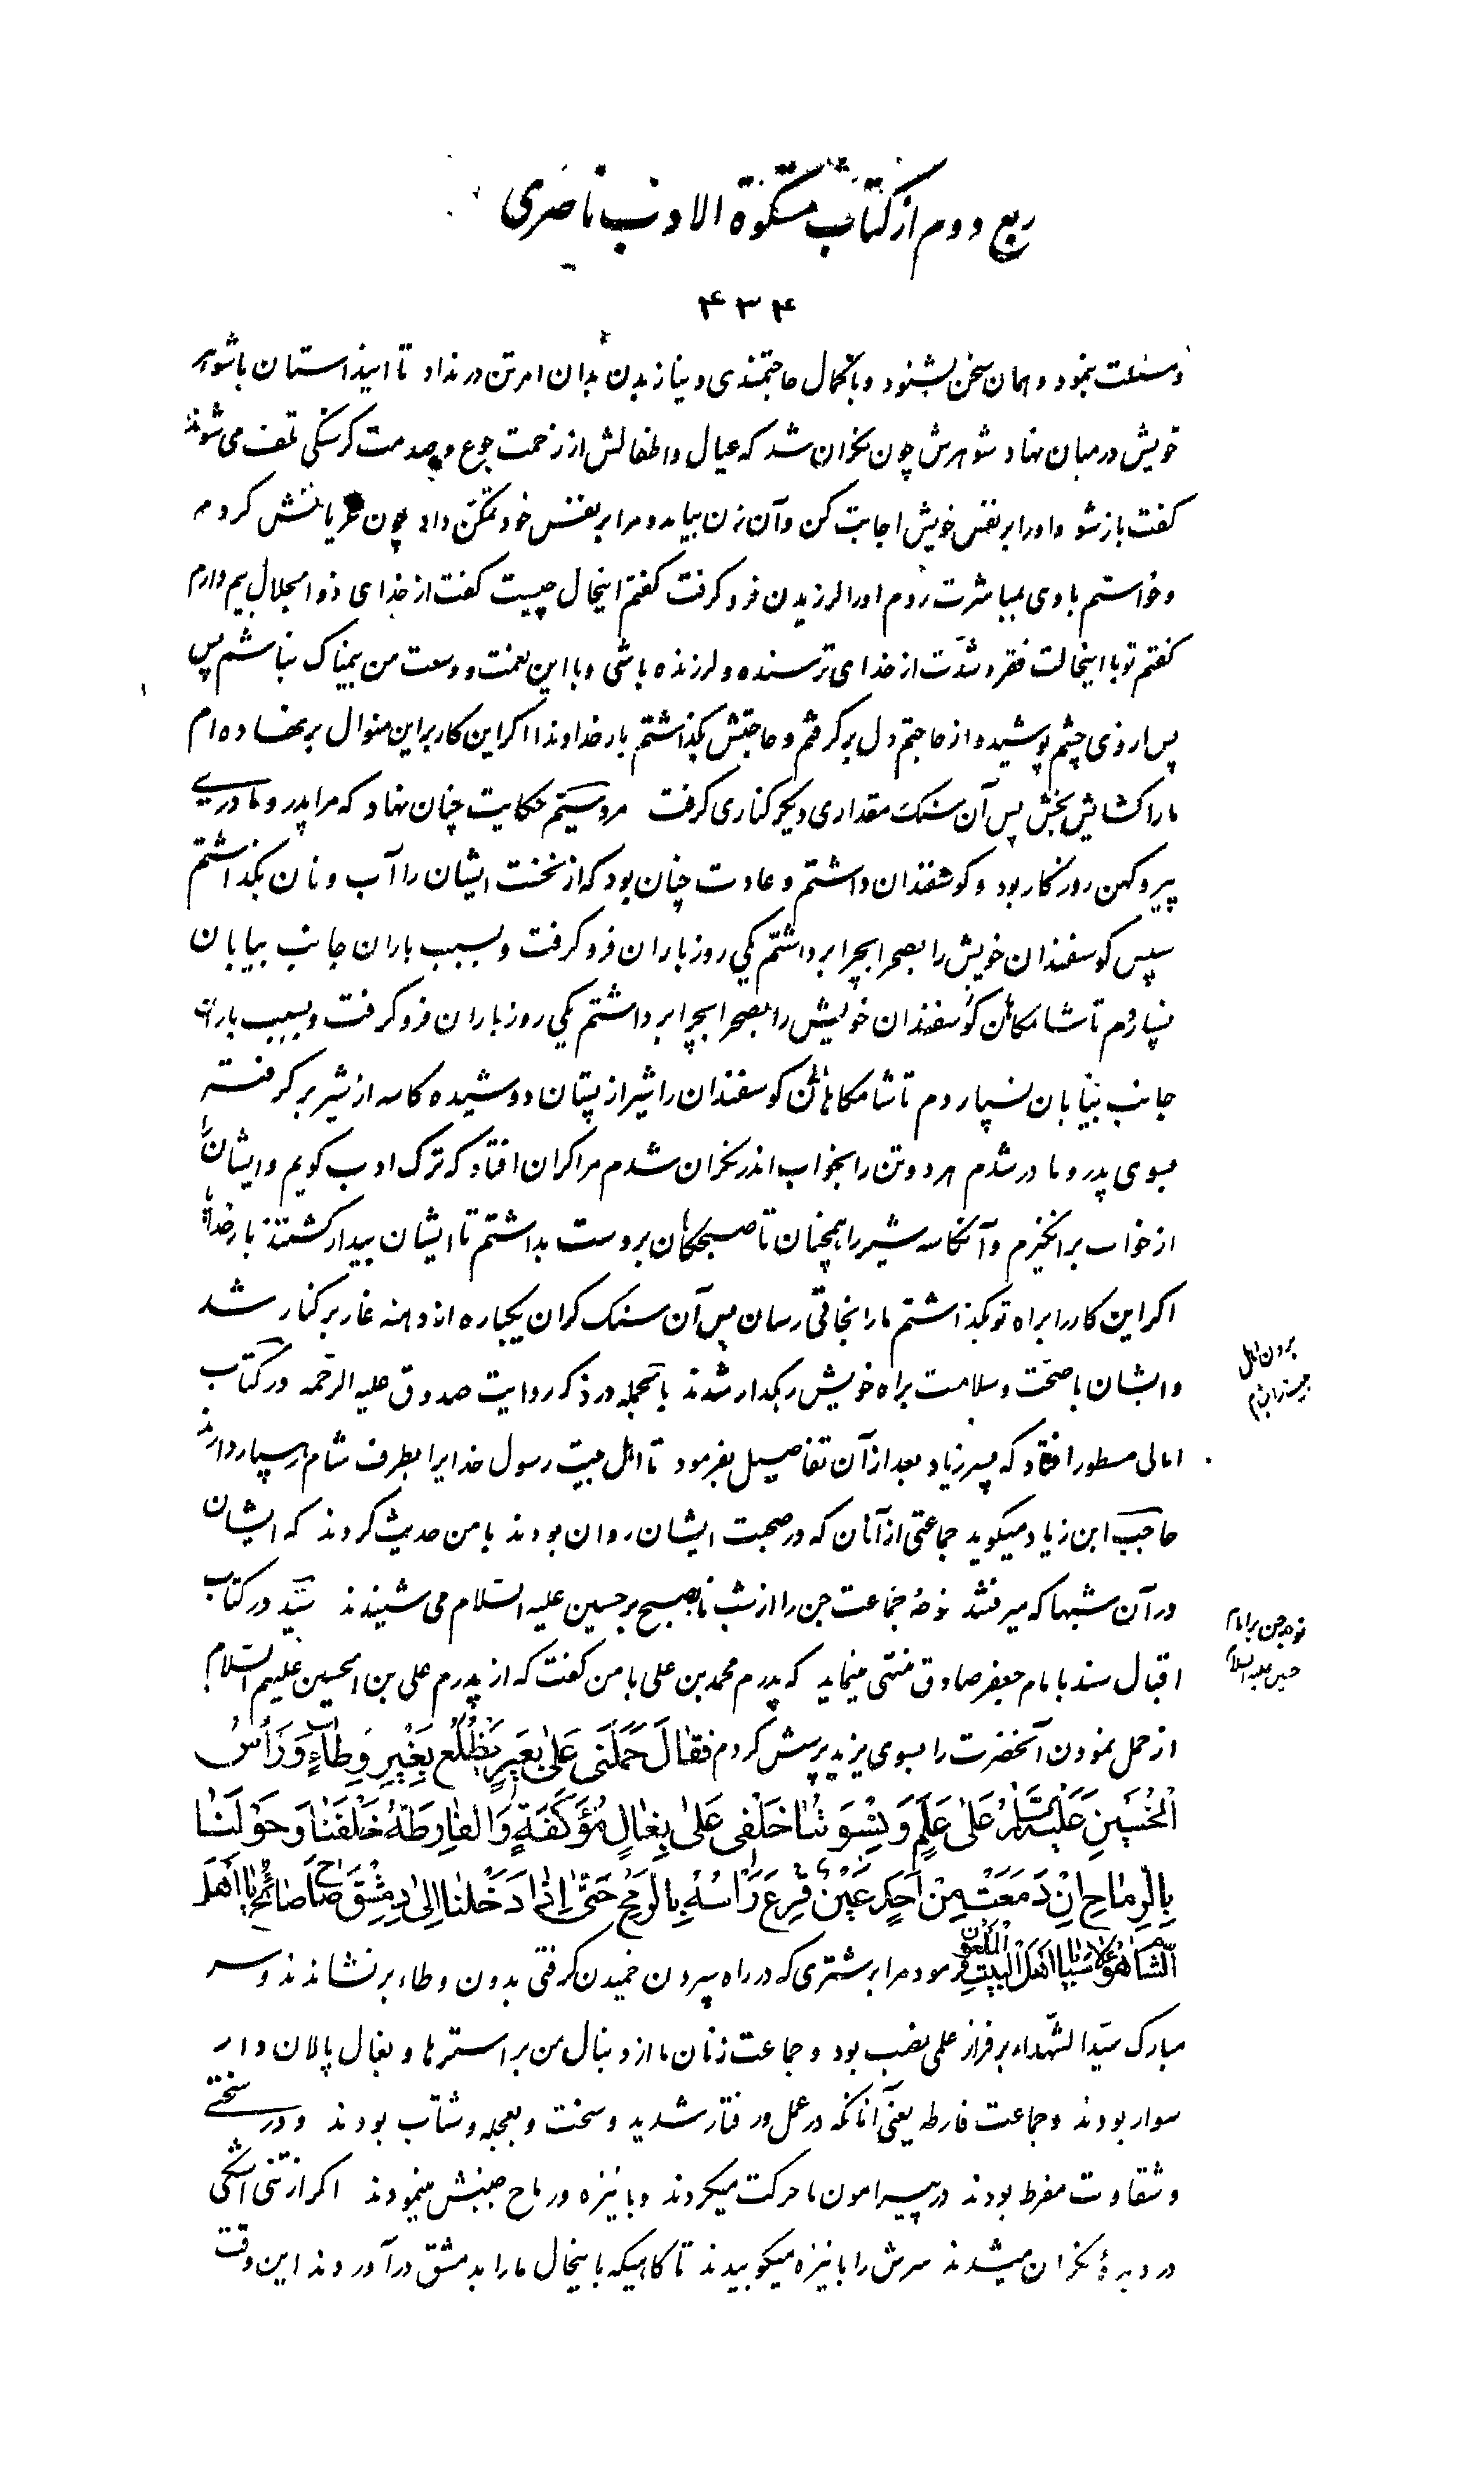 ربع دوم از کتاب مشکوة الادب ناصری
۴۳۴
و مسئلت بنمود و همان سخن بشنود و با کمال حاجتمندی و نیاز بدن بدان امر تن در نداد تا این داستان با شوهر
خویش در میان نهاد شوهرش چون نکران شد که عیال و اطفالش از زحمت جوع و صدمت کرسنکی تلف می شوند
کفت باز شو و او را بر نفس خویش اجابت کن و آن زن بیامد و مرا بر نفس خود تمکن داد چون عریانش کردم
و خواستم با وی بمباشرت روم او را لرزیدن فرو کرفت کفتم اینحال چیست کفت از خدای ذو الجلال بیم دارم
کفتم تو با اینحالت فقر و شدّت از خدای ترسنده و لرزنده باشی و با این نعمت و وسعت من بیمناک نباشم پس
پس از وی چشم پوشیده از حاجتم دل بر کرفتم و حاجتش بکذاشتم بار خداوندا اکر این کار بر این منوال بر نهاده ام
ما را کشایش بخش پس آن سنک مقداری دیکر کناری کرفت مرد سیّم حکایت چنان نهاد که مرا پدر و مادری
پیر و کهن روزکار بود و کوسفندان داشتم و عادت چنان بود که از نخست ایشان را آب و نان بکذاشتم
سپس کوسفندان خویش را بصحرا بچرا بر داشتم یکی روز باران فرو کرفت و بسبب باران جانب بیابان
نسپاردم تا شامکاهان کوسفندان خویش را بصحرا بچرا بر داشتم یکی روز باران فرو کرفت و بسبب باران
جانب بیابان نسپاردم تا شامکاهان کوسفندان را شیر از پستان دوشیده کاسه از شیر بر کرفته
بسوی پدر و مادر شدم هر دو تن را بخواب اندر نکران شدم مرا کران افتاد که ترک ادب کویم و ایشان را
از خواب بر انکیزم و آنکاسه شیر را همچنان تا صبحکاهان بر دست بداشتم تا ایشان بیدار کشتند بار خدایا
اکر این کار را براه تو بکذاشتم ما را نجاتی رسان پس آن سنک کران یکباره از دهنه غار بر کنار شد
و ایشان با صحّت و سلامت براه خویش رهکذار شدند بالجمله در ذکر روایت صدوق علیه الرّحمه در کتاب
امالی مسطور افتاد که پسر زیاد بعد از آن تفاصیل بفرمود تا اهل بیت رسول خدایرا بطرف شام رهسپار دارند
حاجب ابن زیاد میکوید جماعتی از آنان که در صحبت ایشان روان بودند با من حدیث کردند که ایشان
در آن شبها که میرفتند نوحهٔ جماعت جن را از شب تا بصبح بر حسین علیه السّلام می شنیدند سیّد در کتاب
اقبال سند بامام جعفر صادق منتهی مینماید که پدرم محمد بن علی با من کفت که از پدرم علی بن الحسین علیهم السّلام
از حمل نمودن آنحضرت را بسوی یزید پرسش کردم فقالَ حَمَلَنی عَلیٰ بَعیرٍ یَظْلَعُ بِغَیْرِ وِطاءٍ وَ رَأسُ
الْحُسَیْنِ عَلَیْهِ السَّلامُ عَلیٰ عَلَمٍ وَ نِسْوَتُنا خَلْفی عَلیٰ بِغالٍ مُؤَکَّفَةٍ وَ الفارِطَةُ خَلْفَنا وَ حَوْلَنا
بِالرِّماحِ اِنْ دَمَعَتْ مِنْ اَحَدٍ عَیْنٌ قُرِعَ رَأسُهُ بِالرُّمْحِ حَتّیٰ اِذا دَخَلْنا اِلیٰ دِمِشْقَ صاحَ صائِحٌ یا اَهْلَ
الشّامِ هٰؤُلاءِ سَبایا اَهْلِ الْبَیْتِ الْمَلْعُونِ فرمود مرا بر شتری که در راه سپردن خمیدن کرفتی بدون وطاء بر نشاندند و سر
مبارک سیّد الشّهداء بر فراز علمی نصب بود و جماعت زنان ما از دنبال من بر استرها و بغال پالان دار
سوار بودند و جماعت فارطه یعنی آنانکه در عمل و رفتار شدید و سخت و بعجله و شتاب بودند و در سختی
و شقاوت مفرط بودند در پیرامون ما حرکت میکردند و با نیزه و رماح جنبش مینمودند اکر از تنی اشکی
در دیدهٔ نکران میشدند سرش را با نیزه میکوبیدند تا کاهیکه با ینحال ما را بدمشق در آوردند این وقت
بردن اهل
بیت را بشام
نوحه جن بر امام
حسین علیه السلام